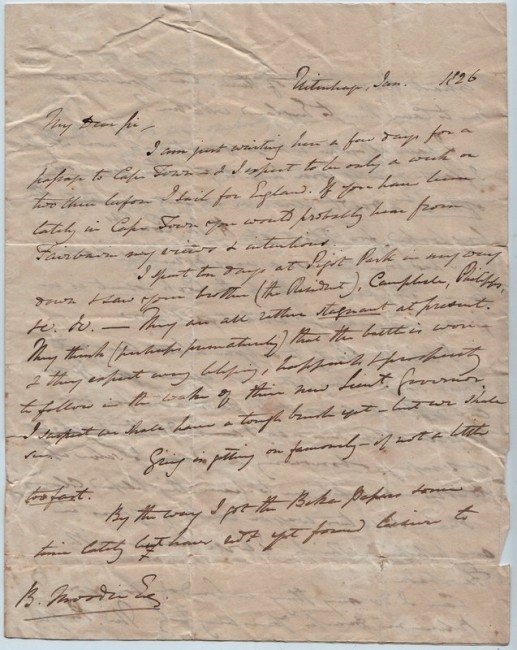 Uitenhage, Jan. 1826
My Dear Sir,
I am just waiting here a few days for a
passage to Cape Town & I expect to be only a week or
two there before I sail for England. If you have been
lately in Cape Town you would probably hear from
Fairbairn my views & intentions
I spent ten days at Pigot Park on my way
down & saw your brother (the Resident), Campbell, Philipps,
&c. &c. — They are all rather stagnant at present.
They think (perhaps prematurely) that the battle is won
& they expect every blessing, happiness & prosperity
to follow in the wake of their new Lieut. Governor.
— I suspect we shall have a tough brush yet — but we shall
see. Greig is getting on famously — if not a little
too fast.
By the way I got the Papers some
time lately but have not yet found leisure to
B. Moodie Esq